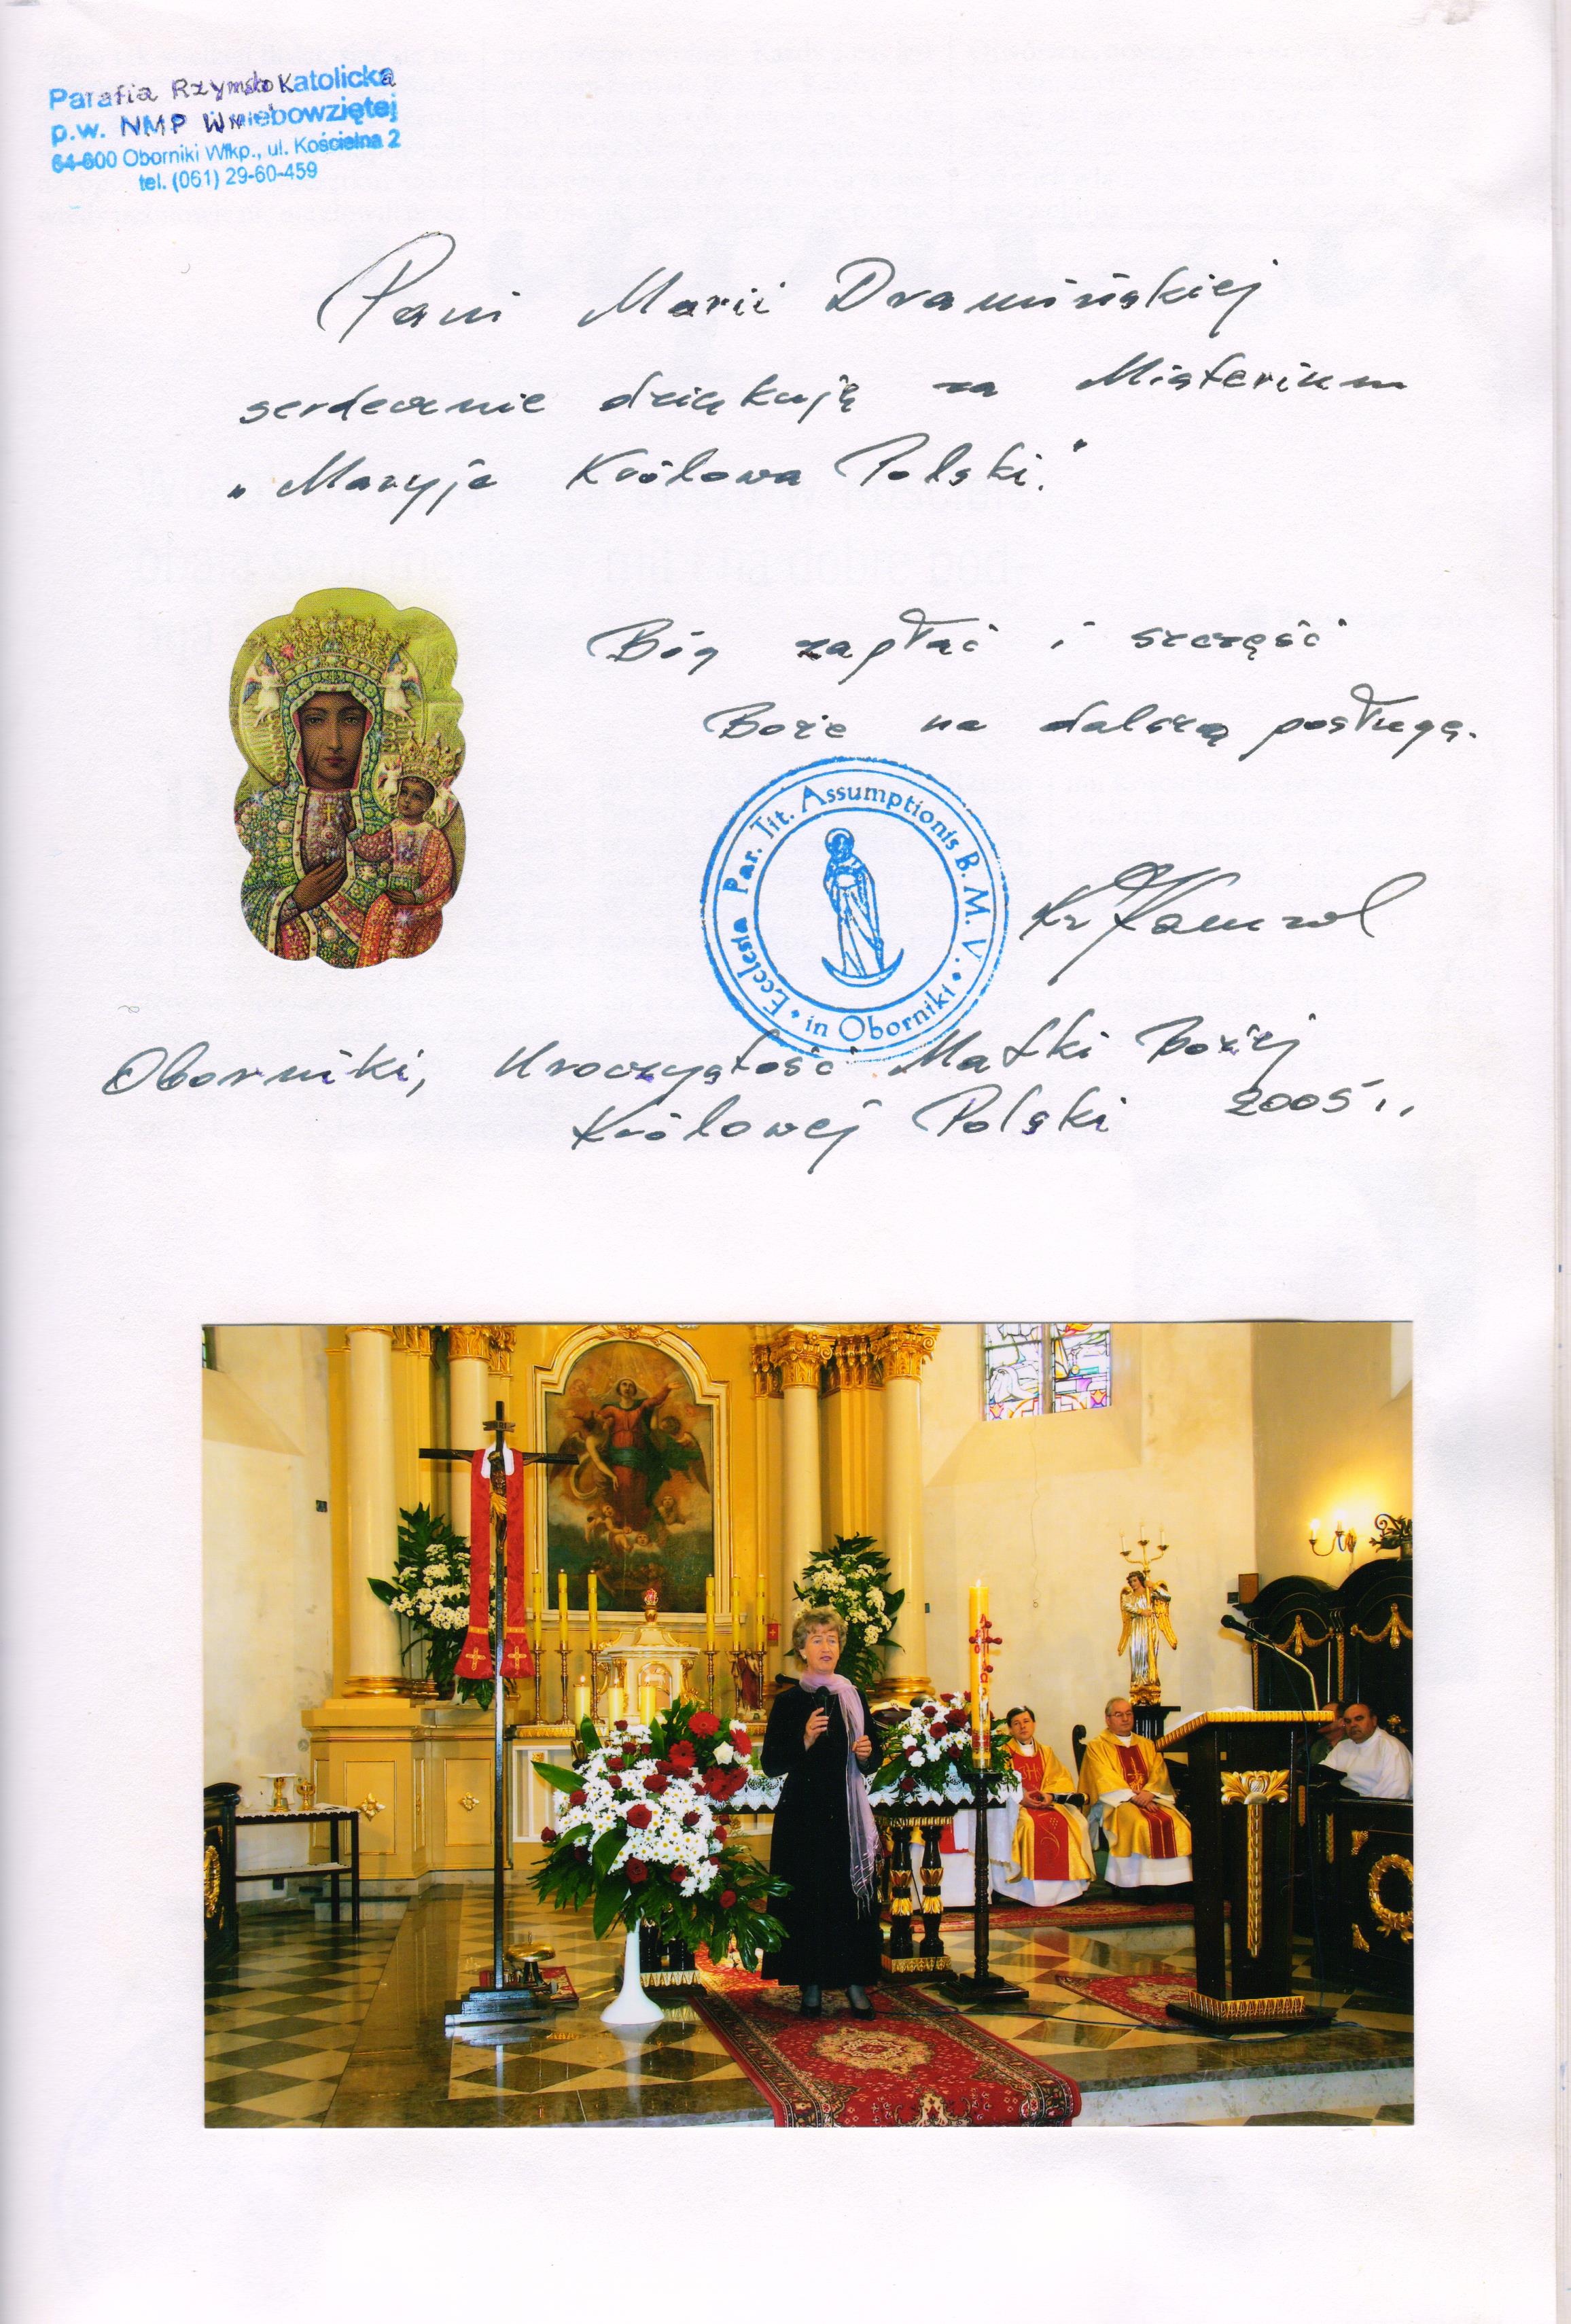 Parafia RzymskoKatolicka
p.w. NMP Wniebowziętej
64-600 Oborniki Wlkp., ul. Kościelna 2
tel. (061) 29-60-459
Pani Marii Dramińskiej
serdecznie dziękuję za Misterium
„Maryja Królowa Polski."
Bóg zapłać i szczęść
Boże na dalszą posługę.
Ecclesia Par. Tit. Assumptionis B. M. V. • in Oborniki •
Oborniki, Uroczystość Matki Bożej
Królowej Polski 2005 r.